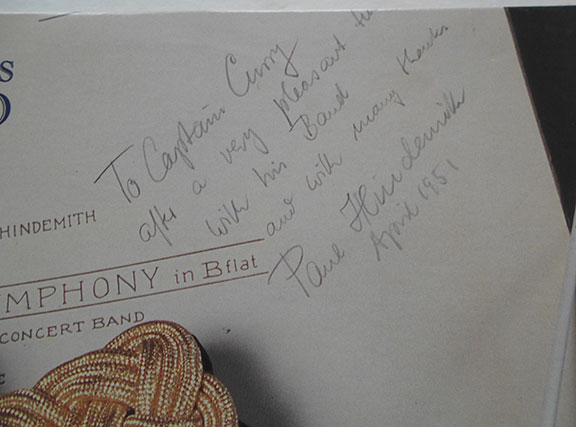 To Captain Curry
after a very pleasant
with his Band
and with many thanks
Paul Hindemith
April 1951
HINDEMITH
MPHONY in B flat
CONCERT BAND